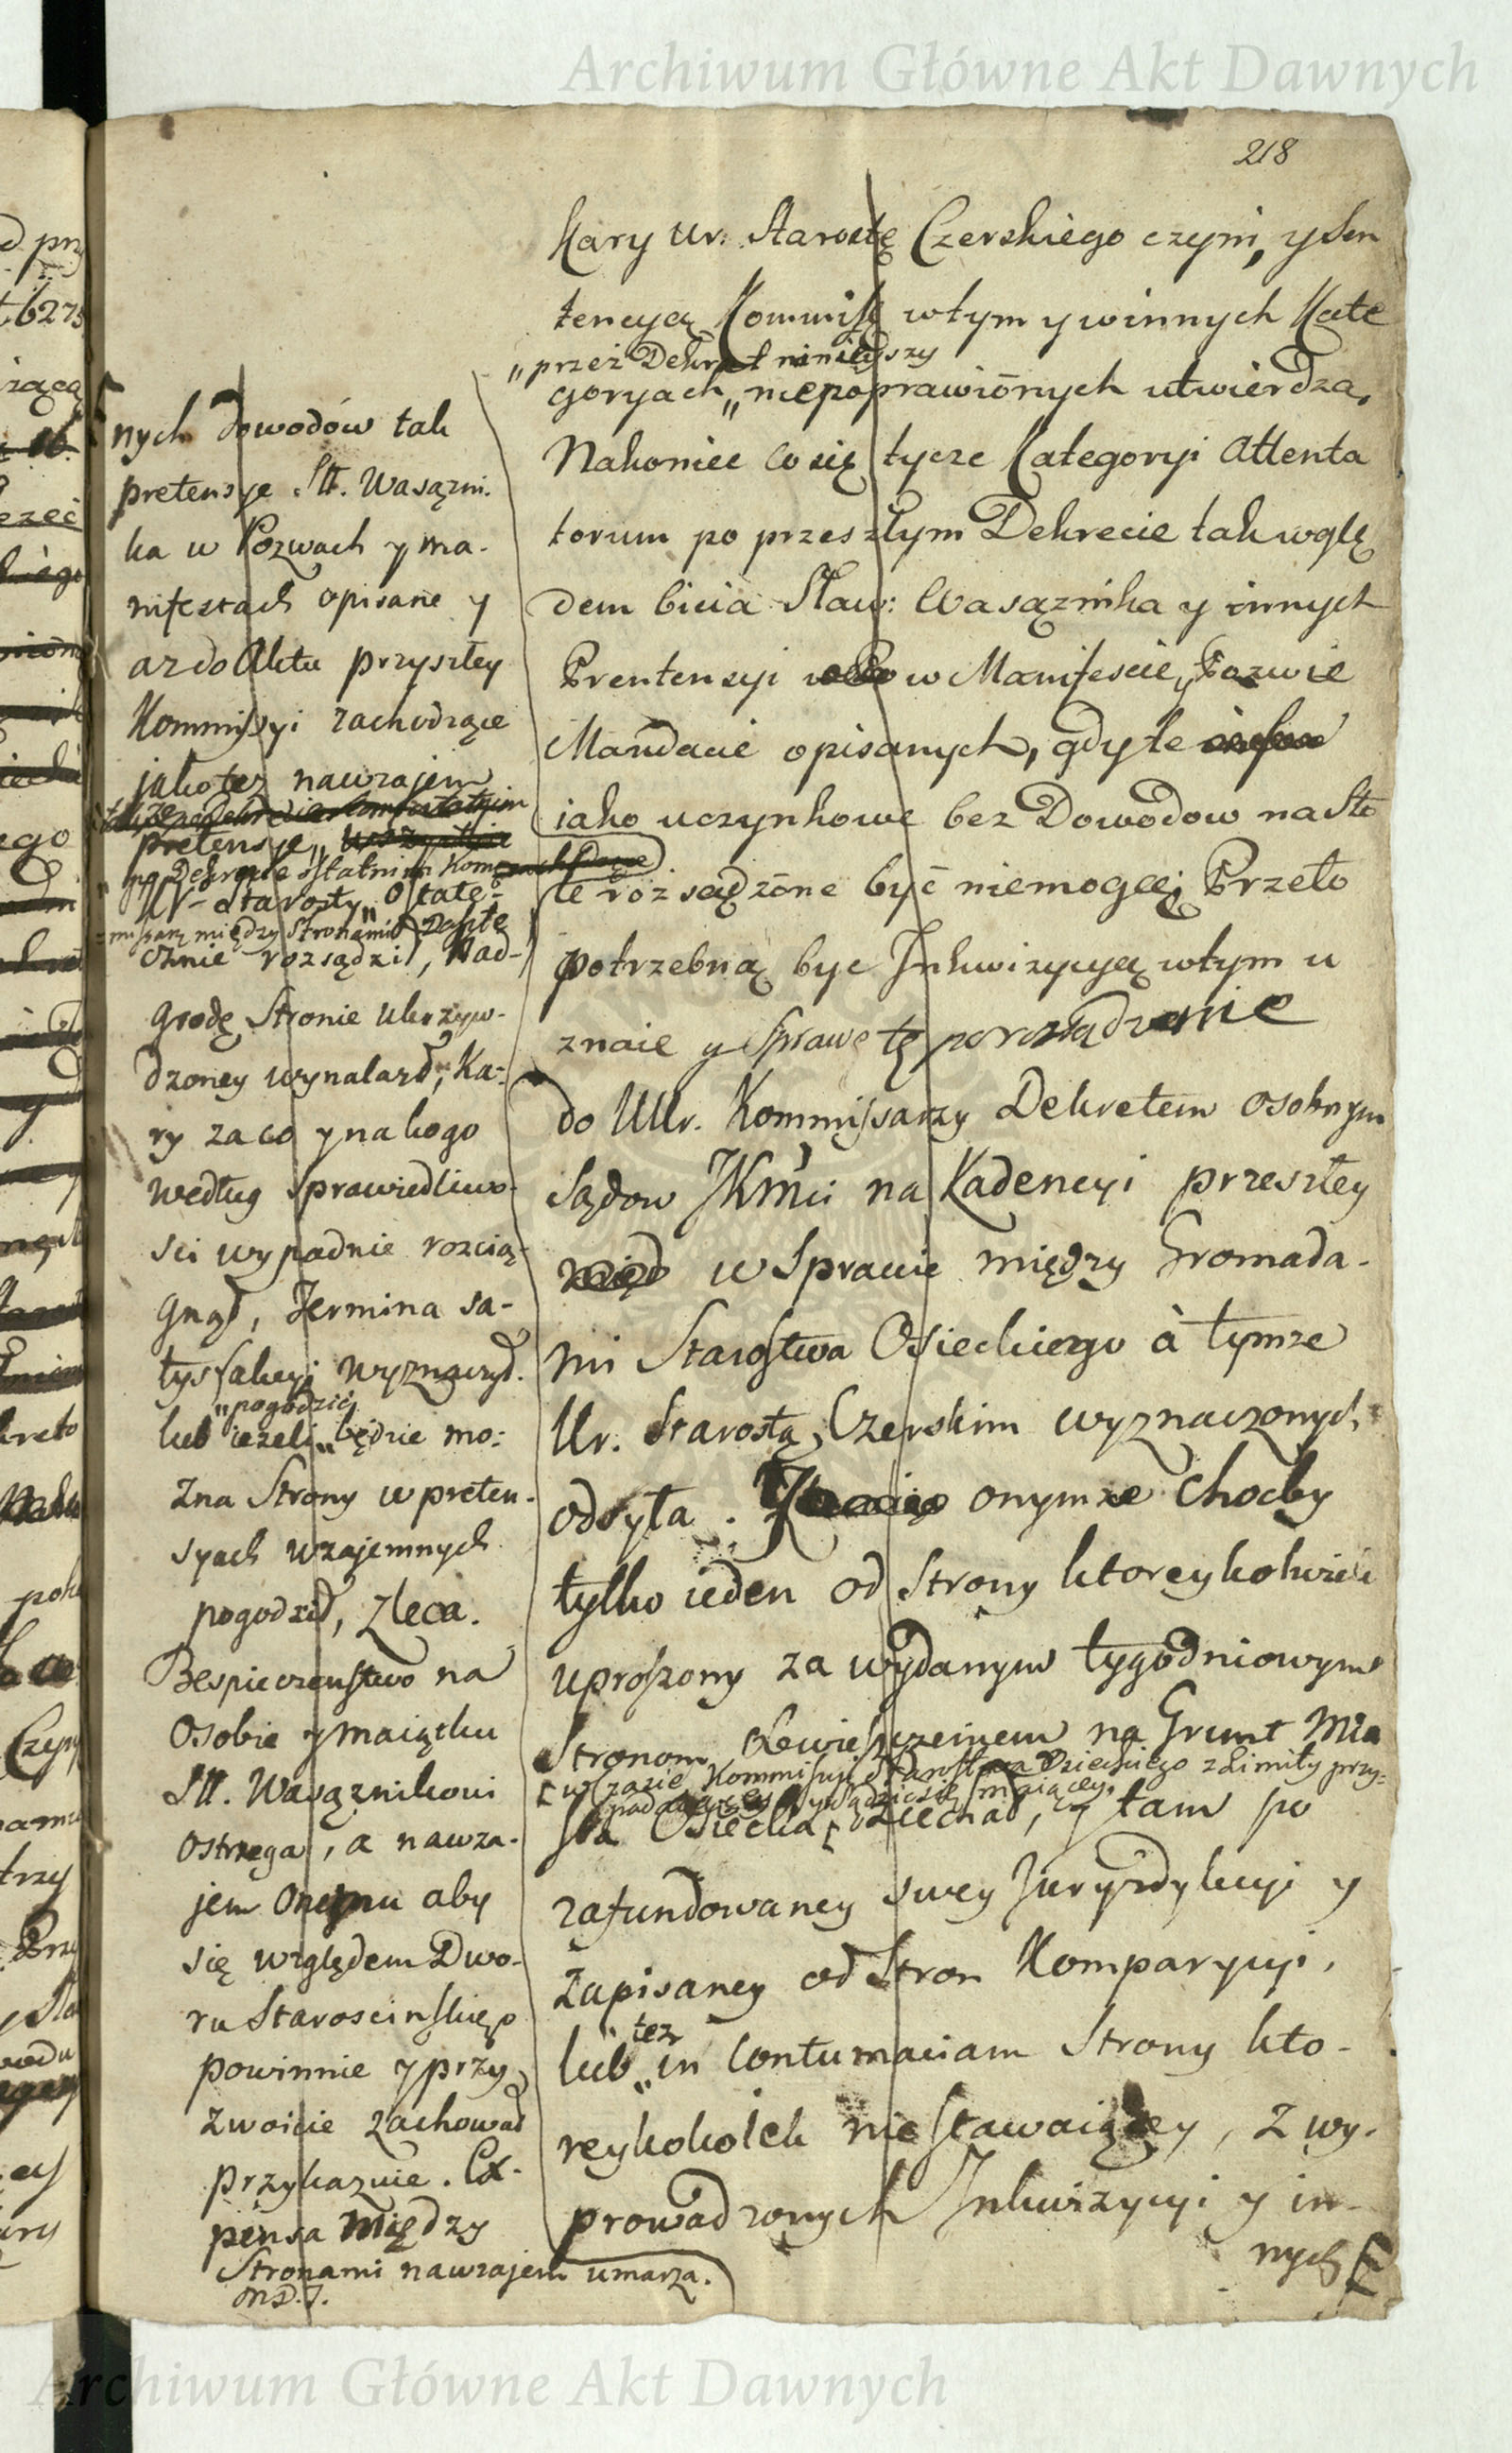 Archiwum Główne Akt Dawnych
218
Kary Ur. Starostę Czerskiego czyni, y Sen
tencyą Kommiss. w tym y winnych Kate
„przez Dekret ninieyszy
goryach „niepoprawionych utwierdza,
Nakoniec co się tycze Kategoryi Attenta
torum po przeszłym Dekrecie tak wzglę
dem bicia Sław: Wasąznika y innych
Prentensyi w Manifescie, y Pozwie
Mandacie opisanych, gdy te
iako uczynkowe bez Dowodow na Sto
le rozsądzone być niemogą; Przeto
potrzebną byc Inkwizycyą w tym u
znaie y Sprawę tę po rozsądzenie
do UUr. Kommissarzy Dekretem osobnym
Sądow JKMci na Kadencyi przeszłey
w Sprawie między Gromada-
mi Starostwa Osieckiego à tymze
Ur. Starostą Czerskim wyznaczonych
odsyła. onymze choćby
tylko ieden od Strony ktoreykolwiek
uproszony za wydanym tygodniowym
Stronom obwieszczeniem na Grunt Mia
[w czasie Kommissyi Starostwa Osieckiego z Limity przy-
padaiącey y sądzić się maiącey,
sta Osiecka [ziechał, y tam po
zafundowaney swey Juryzdykcyi y
zapisaney od Stron Komparycyi,
też
lub „in Contumaciam Strony kto-
reykolwiek nie stawaiącey, z wy-
prowadzonych Inkwizycyi y in-
nych
nych dowodów tak
pretensye Sł. Wasązni-
ka w Pozwach y ma-
nifestach opisane y
az do Aktu przyszłey
Kommissyi zachodzące
jako tez nawzajem
pretensye „wszystkie
po Dekrecie ostatnim Kom-
Ur- Starosty „Ostate-
-missarz między Stronami zaszłe
cznie rozsądził, Nad-
grodę Stronie ukrzyw-
dzoney wynalazł, Ka-
ry za co y na kogo
według Sprawiedliwo-
sci wypadnie rozcią-
gnął, Termina sa-
tysfakcyi wyznaczył.
„pogodzić
lub iezeli „będzie mo-
zna Strony w preten-
syach wzajemnych
pogodził, zleca.
Bespieczenstwo na
Osobie y maiątku
Sł. Wasąznikowi
ostrzega, a nawza-
jem onemu aby
się względem Dwo-
ru Starościnskiego
powinnie y przy
zwoicie zachował
przykazuie. Ex-
pensa między
Stronami nawzajem umarza.
M.D.J.
Archiwum Główne Akt Dawnych